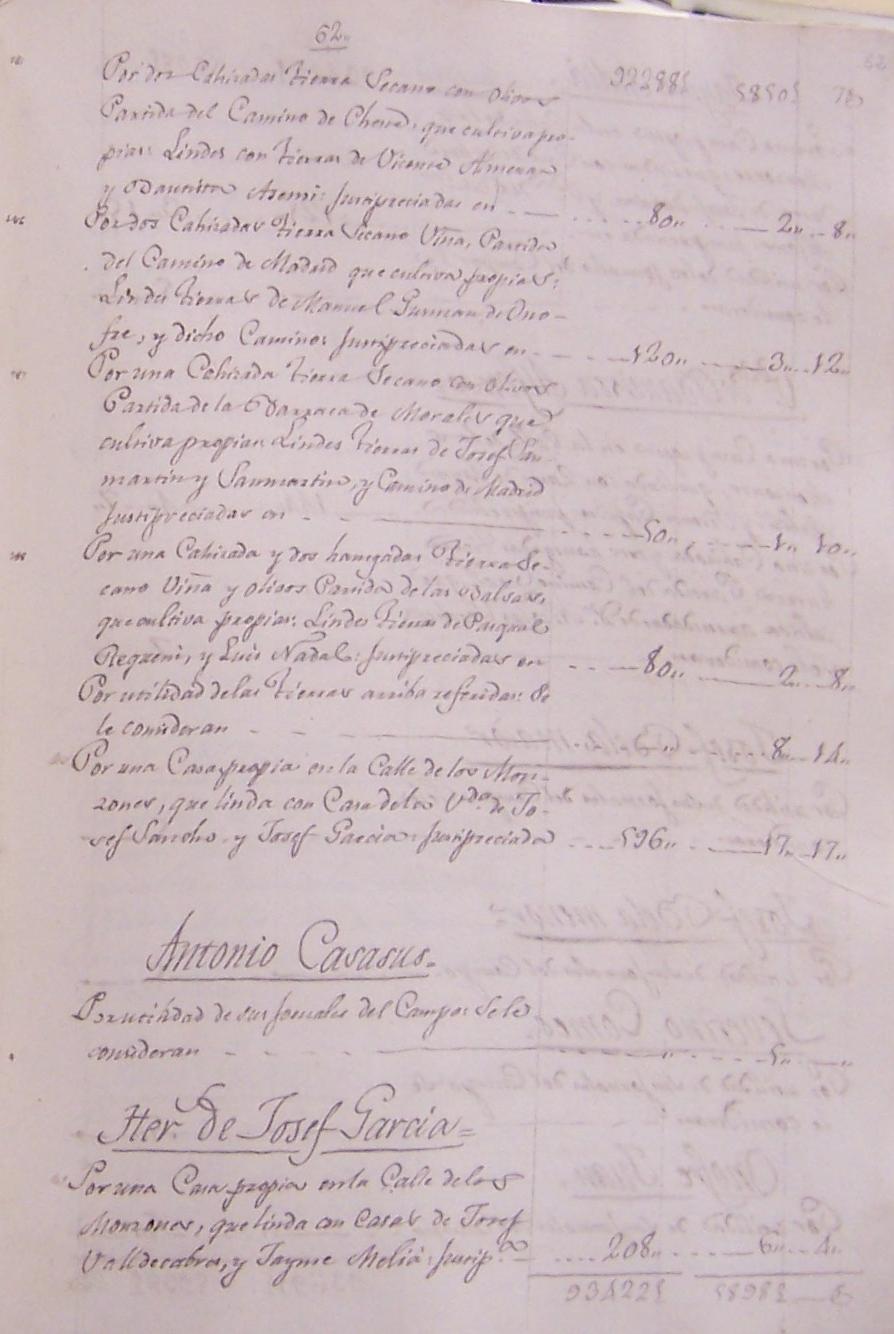 62
Por dos Cahizadas tierra Secano con olivos
Partida del Camino de que cultiva pro-
pias: Lindes con tierras de Vicente Almenar
y Bautista Asensi: Justipreciadas en 80 2 8
Por dos Cahizadas tierra Secano Viña, Partida
del Camino de Madrid que cultiva propias:
Lindes tierras de Manuel Guzman de Ono-
fre, y dicho Camino: Justipreciadas en 120 3 12
Por una Cahizada tierra Secano con olivos
Partida de la Barraca de Morales que
cultiva propias: Lindes tierras de Josef San-
martin y Sanmartin, y Camino de Madrid
Justipreciadas en 50 1 10
Por una Cahizada y dos hanegadas tierra Se-
cano Viña y olivos Partida de las Balsas,
que cultiva propias: Lindes tierras de Pasqual
Requeni, y Luis Nadal: Justipreciadas en 80 2 8
Por utilidad de las tierras arriba referidas: Se
le consideran 8 14
Por una Casa propia en la Calle de los Mon-
zones, que linda con Casa de la V.da de Jo-
sef Sancho y Josef Garcia: Justipreciada 596 17 17
Antonio Casasus
Por utilidad de sus Jornales del Campo: Se le
consideran 5
Her.s de Josef Garcia
Por una Casa propia en la Calle de los
Monzones, que linda con Casas de Josef
Valldecabres, y Jayme Meliá: Justip.da 208 6 4